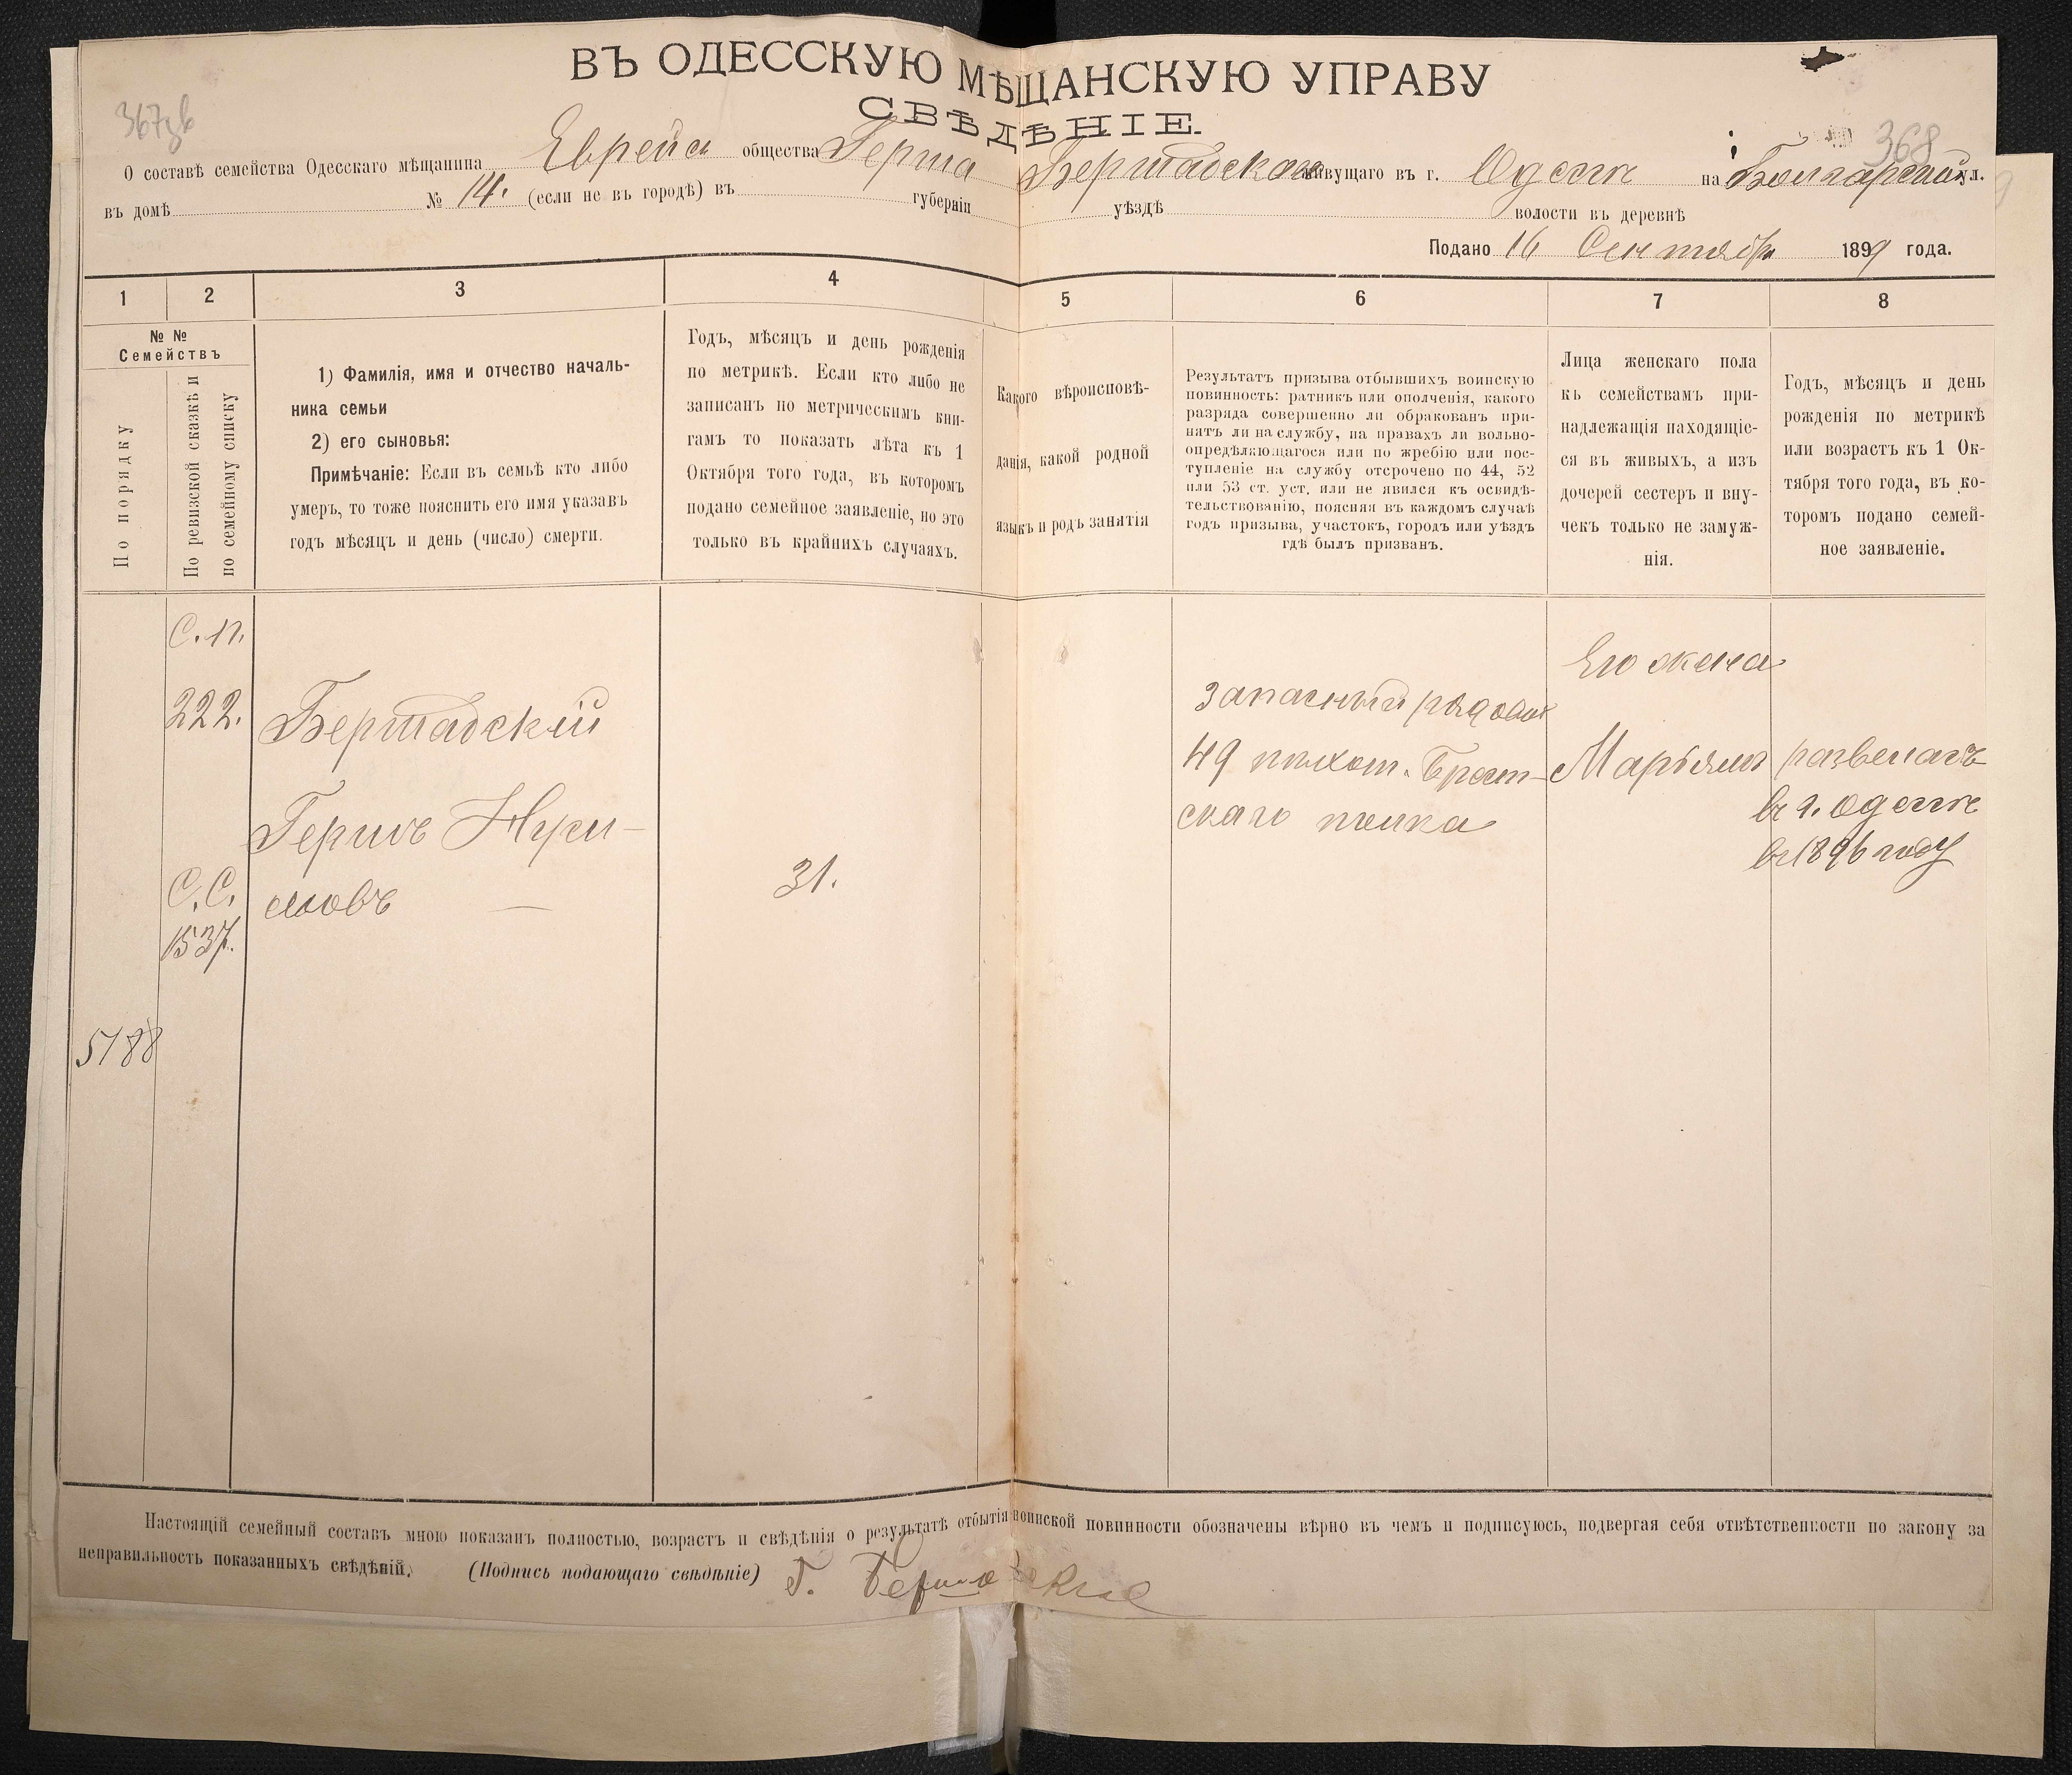 ВЪ ОДЕССКУЮ МѢЩАНСКУЮ УПРАВУ
СВѢДѢНІЕ.
367
368
О составѣ семейства Одесскаго мѣщанина Еврейск общества Герша Бершадскаго живущаго въ г. Одессѣ на Болгарской ул.
въ домѣ № 14. (если не въ городѣ) въ губерніи уѣздѣ волости въ деревнѣ
Подано 16 Сентября 1899 года.
1 2 3 4 5 6 7 8
№ №
Семействъ
По порядку
По ревизской сказкѣ и
по семейному списку
1) Фамилія, имя и отчество началь-
ника семьи
2) его сыновья:
Примѣчаніе: Если въ семьѣ кто либо
умеръ, то тоже пояснить его имя указавъ
годъ мѣсяцъ и день (число) смерти.
Годъ, мѣсяцъ и день рожденія
по метрикѣ. Если кто либо не
записанъ по метрическимъ кни-
гамъ то показать лѣта къ 1
Октября того года, въ которомъ
подано семейное заявленіе, но это
только въ крайнихъ случаяхъ.
Какого вѣроисповѣ-
данія, какой родной
языкъ и родъ занятія
Результатъ призыва отбывшихъ воинскую
повинность: ратникъ или ополченія, какого
разряда совершенно ли обракованъ при-
нятъ ли на службу, на правахъ ли вольно-
опредѣляющагося или по жребію или пос-
тупленіе на службу отсрочено по 44, 52
или 53 ст. уст. или не явился къ освидѣ-
тельствованію, поясняя въ каждомъ случаѣ
годъ призыва, участокъ, городъ или уѣздъ
гдѣ былъ призванъ.
Лица женскаго пола
къ семействамъ при-
надлежащія находящіе-
ся въ живыхъ, а изъ
дочерей сестеръ и вну-
чекъ только не замуж-
нія.
Годъ, мѣсяцъ и день
рожденія по метрикѣ
или возрастъ къ 1 Ок-
тября того года, въ ко-
торомъ подано семей-
ное заявленіе.
С. п.
222.
С. С.
1537.
5188
Бершадскій
Гершъ Нуси-
мовъ —
31.
запасный рядовой
49 пѣхот. Брест-
скаго полка
Его жена
Марьямъ
развенчаъ
въ г. Одессѣ
въ 1896 году
Настоящій семейный составъ мною показанъ полностью, возрастъ и свѣдѣнія о результатѣ отбытія воинской повинности обозначены вѣрно въ чемъ и подписуюсь, подвергая себя отвѣтственности по закону за
неправильность показанныхъ свѣдѣній. (Подпись подающаго свѣдѣніе) Г. Бершадские